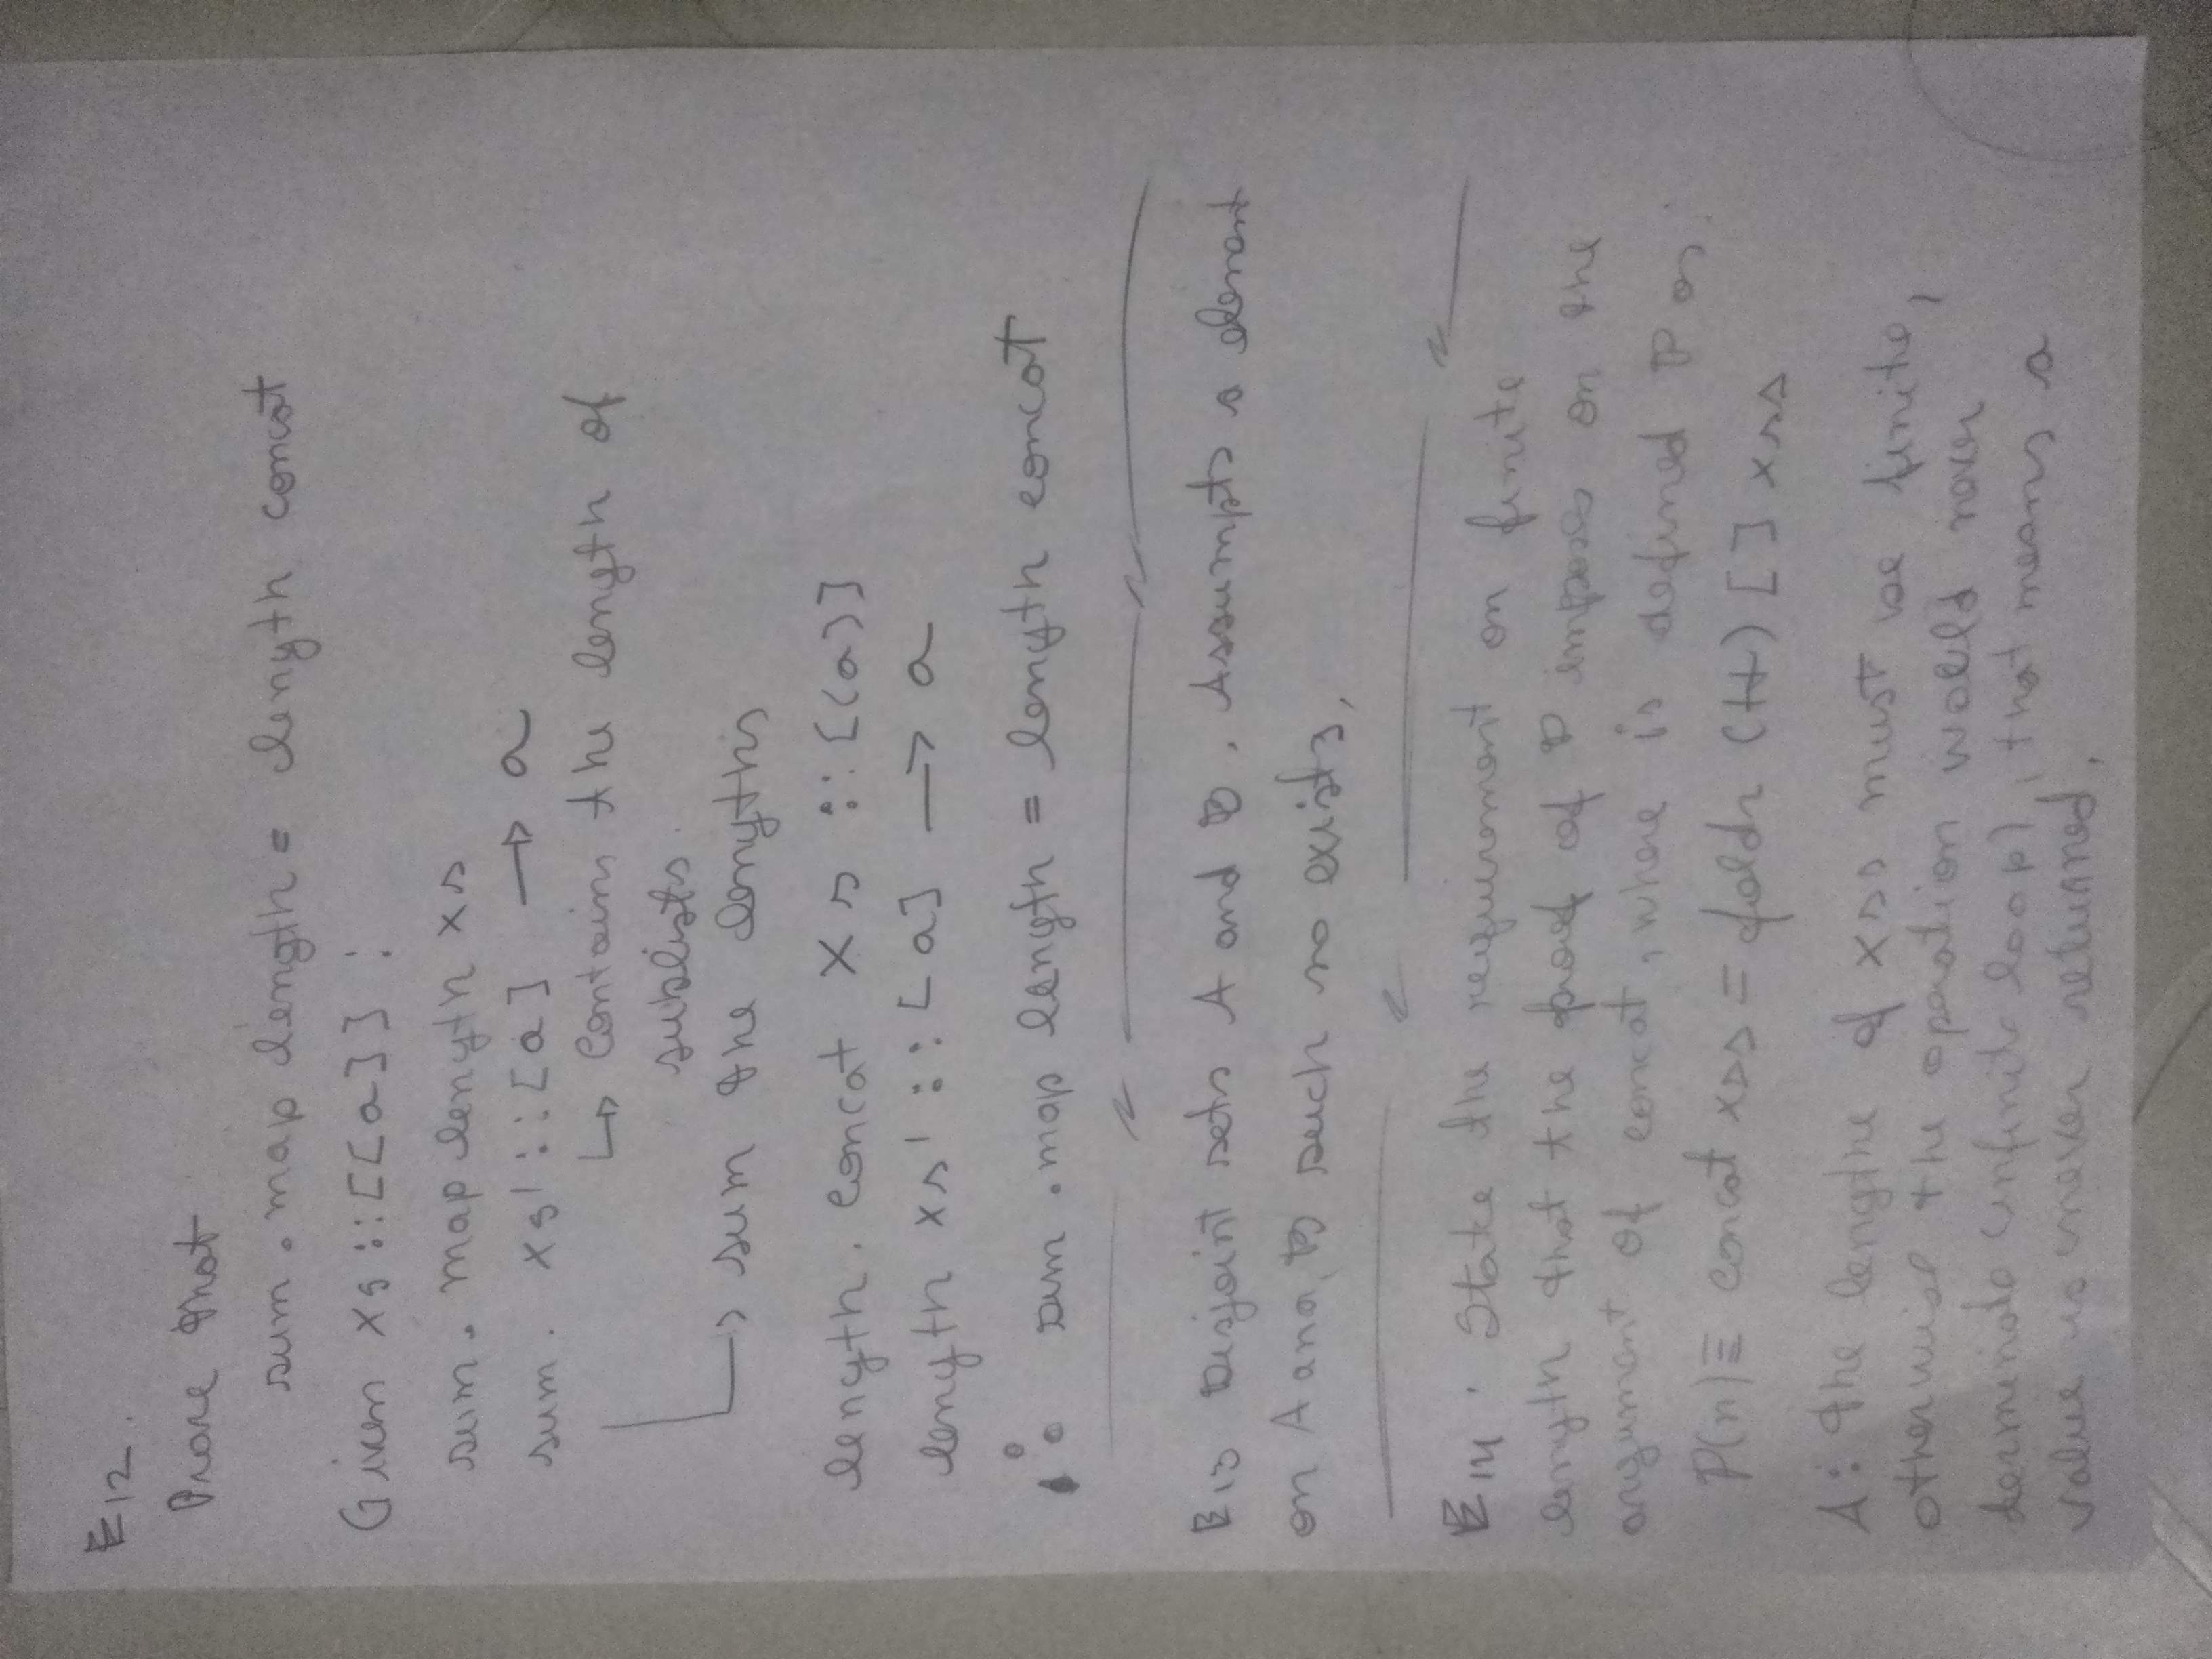 E12.
Prove that
sum . map length = length concat
Given xs :: [[a]] :
sum . map length xs
sum . xs' :: [a] → a
↳ Contains the length of
sublists.
↳ sum the lengths
length . concat xs :: [[a]]
length xs' :: [a] → a
∴ sum . map length = length concat
E13 Disjoint sets A and B. Assumpts a element
on A and B such no exists,
E14. State the requirement on finite
length that the proof of P imposes on the
argument of concat, where is defined P as:
P(n) ≡ concat xss = foldr (++) [] xss
A: the lengthe of xss must be finite,
otherwise the operation would never
terminate (infinite loop), that means a
value is never returned.